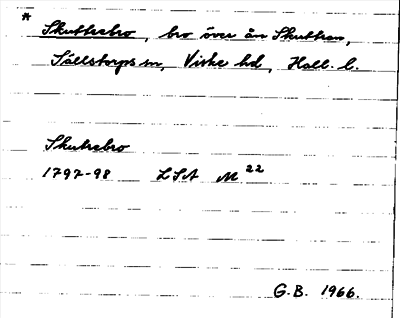 * Skuttrebro, bro över ån Skuttran,
Sällstorps sn, Viske hd, Hall. l.
Skutrebro
1797-98 LSA M 22
G.B. 1966.